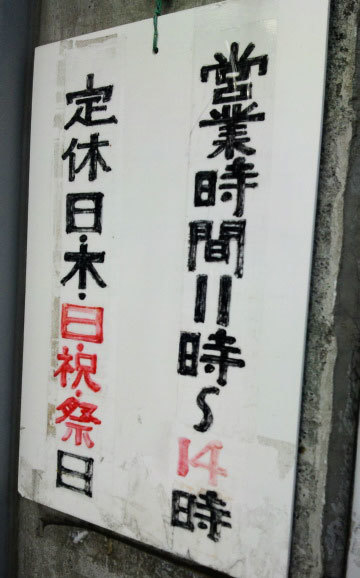 営業時間11時〜14時
定休日・木・日・祝・祭日